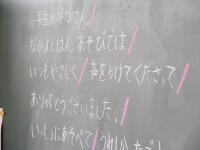 1年生のみなさん
なかよしはんあそびでは
いつもやさしく声をかけてくださって
ありがとうございました。
いっしょにあそべて